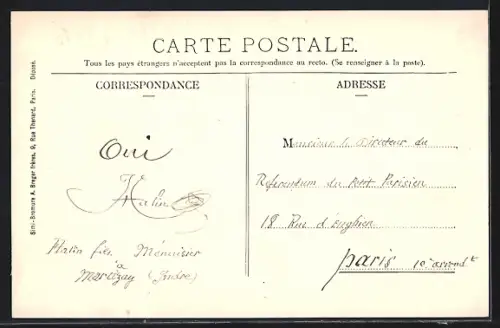 CARTE POSTALE.
Tous les pays étrangers n'acceptent pas la correspondance au recto. (Se renseigner à la poste).
CORRESPONDANCE
ADRESSE
Simi-Bromure A. Breger frères, 9, Rue Thénard, Paris. Déposé.
Oui
Hatin
Hatin fils Menuisier
à
Martizay (Indre)
Monsieur le Directeur du
Referendum du Petit Parisien
18 Rue d'enghien
Paris 10e arrondt